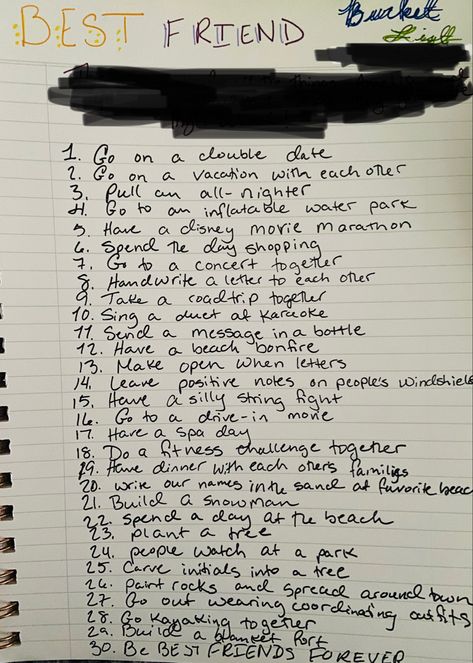 BEST FRIEND Bucket List
1. Go on a double date
2. Go on a vacation with each other
3. Pull an all-nighter
4. Go to an inflatable water park
5. Have a disney movie marathon
6. Spend the day shopping
7. Go to a concert together
8. Handwrite a letter to each other
9. Take a roadtrip together
10. Sing a duet at karaoke
11. Send a message in a bottle
12. Have a beach bonfire
13. Make open when letters
14. Leave positive notes on people's windshield
15. Have a silly string fight
16. Go to a drive-in movie
17. Have a spa day
18. Do a fitness challenge together
19. Have dinner with each others families
20. write our names in the sand at favorite beac
21. Build a snowman
22. Spend a day at the beach
23. plant a tree
24. people watch at a park
25. Carve initials into a tree
26. paint rocks and spread around town
27. Go out wearing coordinating outfits
28. Go Kayaking together
29. Build a blanket fort
30. Be BEST FRIENDS FOREVER